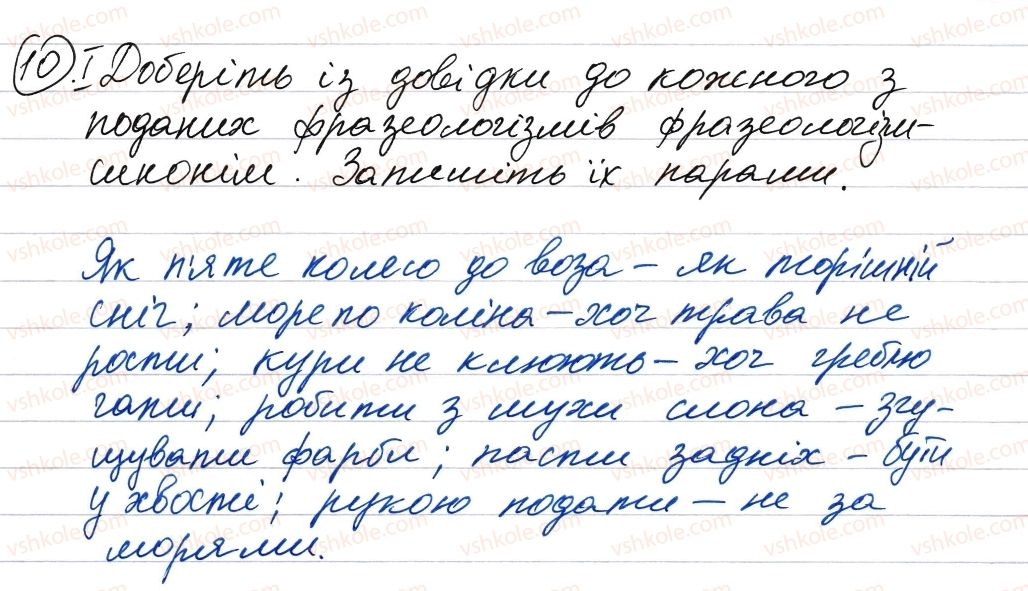 10. I Доберіть із довідки до кожного з
поданих фразеологізмів фразеологізм-
синонім. Запишіть їх парами.
Як п'яте колесо до воза – як торішній
сніг; море по коліна – хоч трава не
рости; кури не клюють – хоч греблю
гати; робити з мухи слона – згу-
щувати фарби; пасти задніх – бути
у хвості; рукою подати – не за
морями.